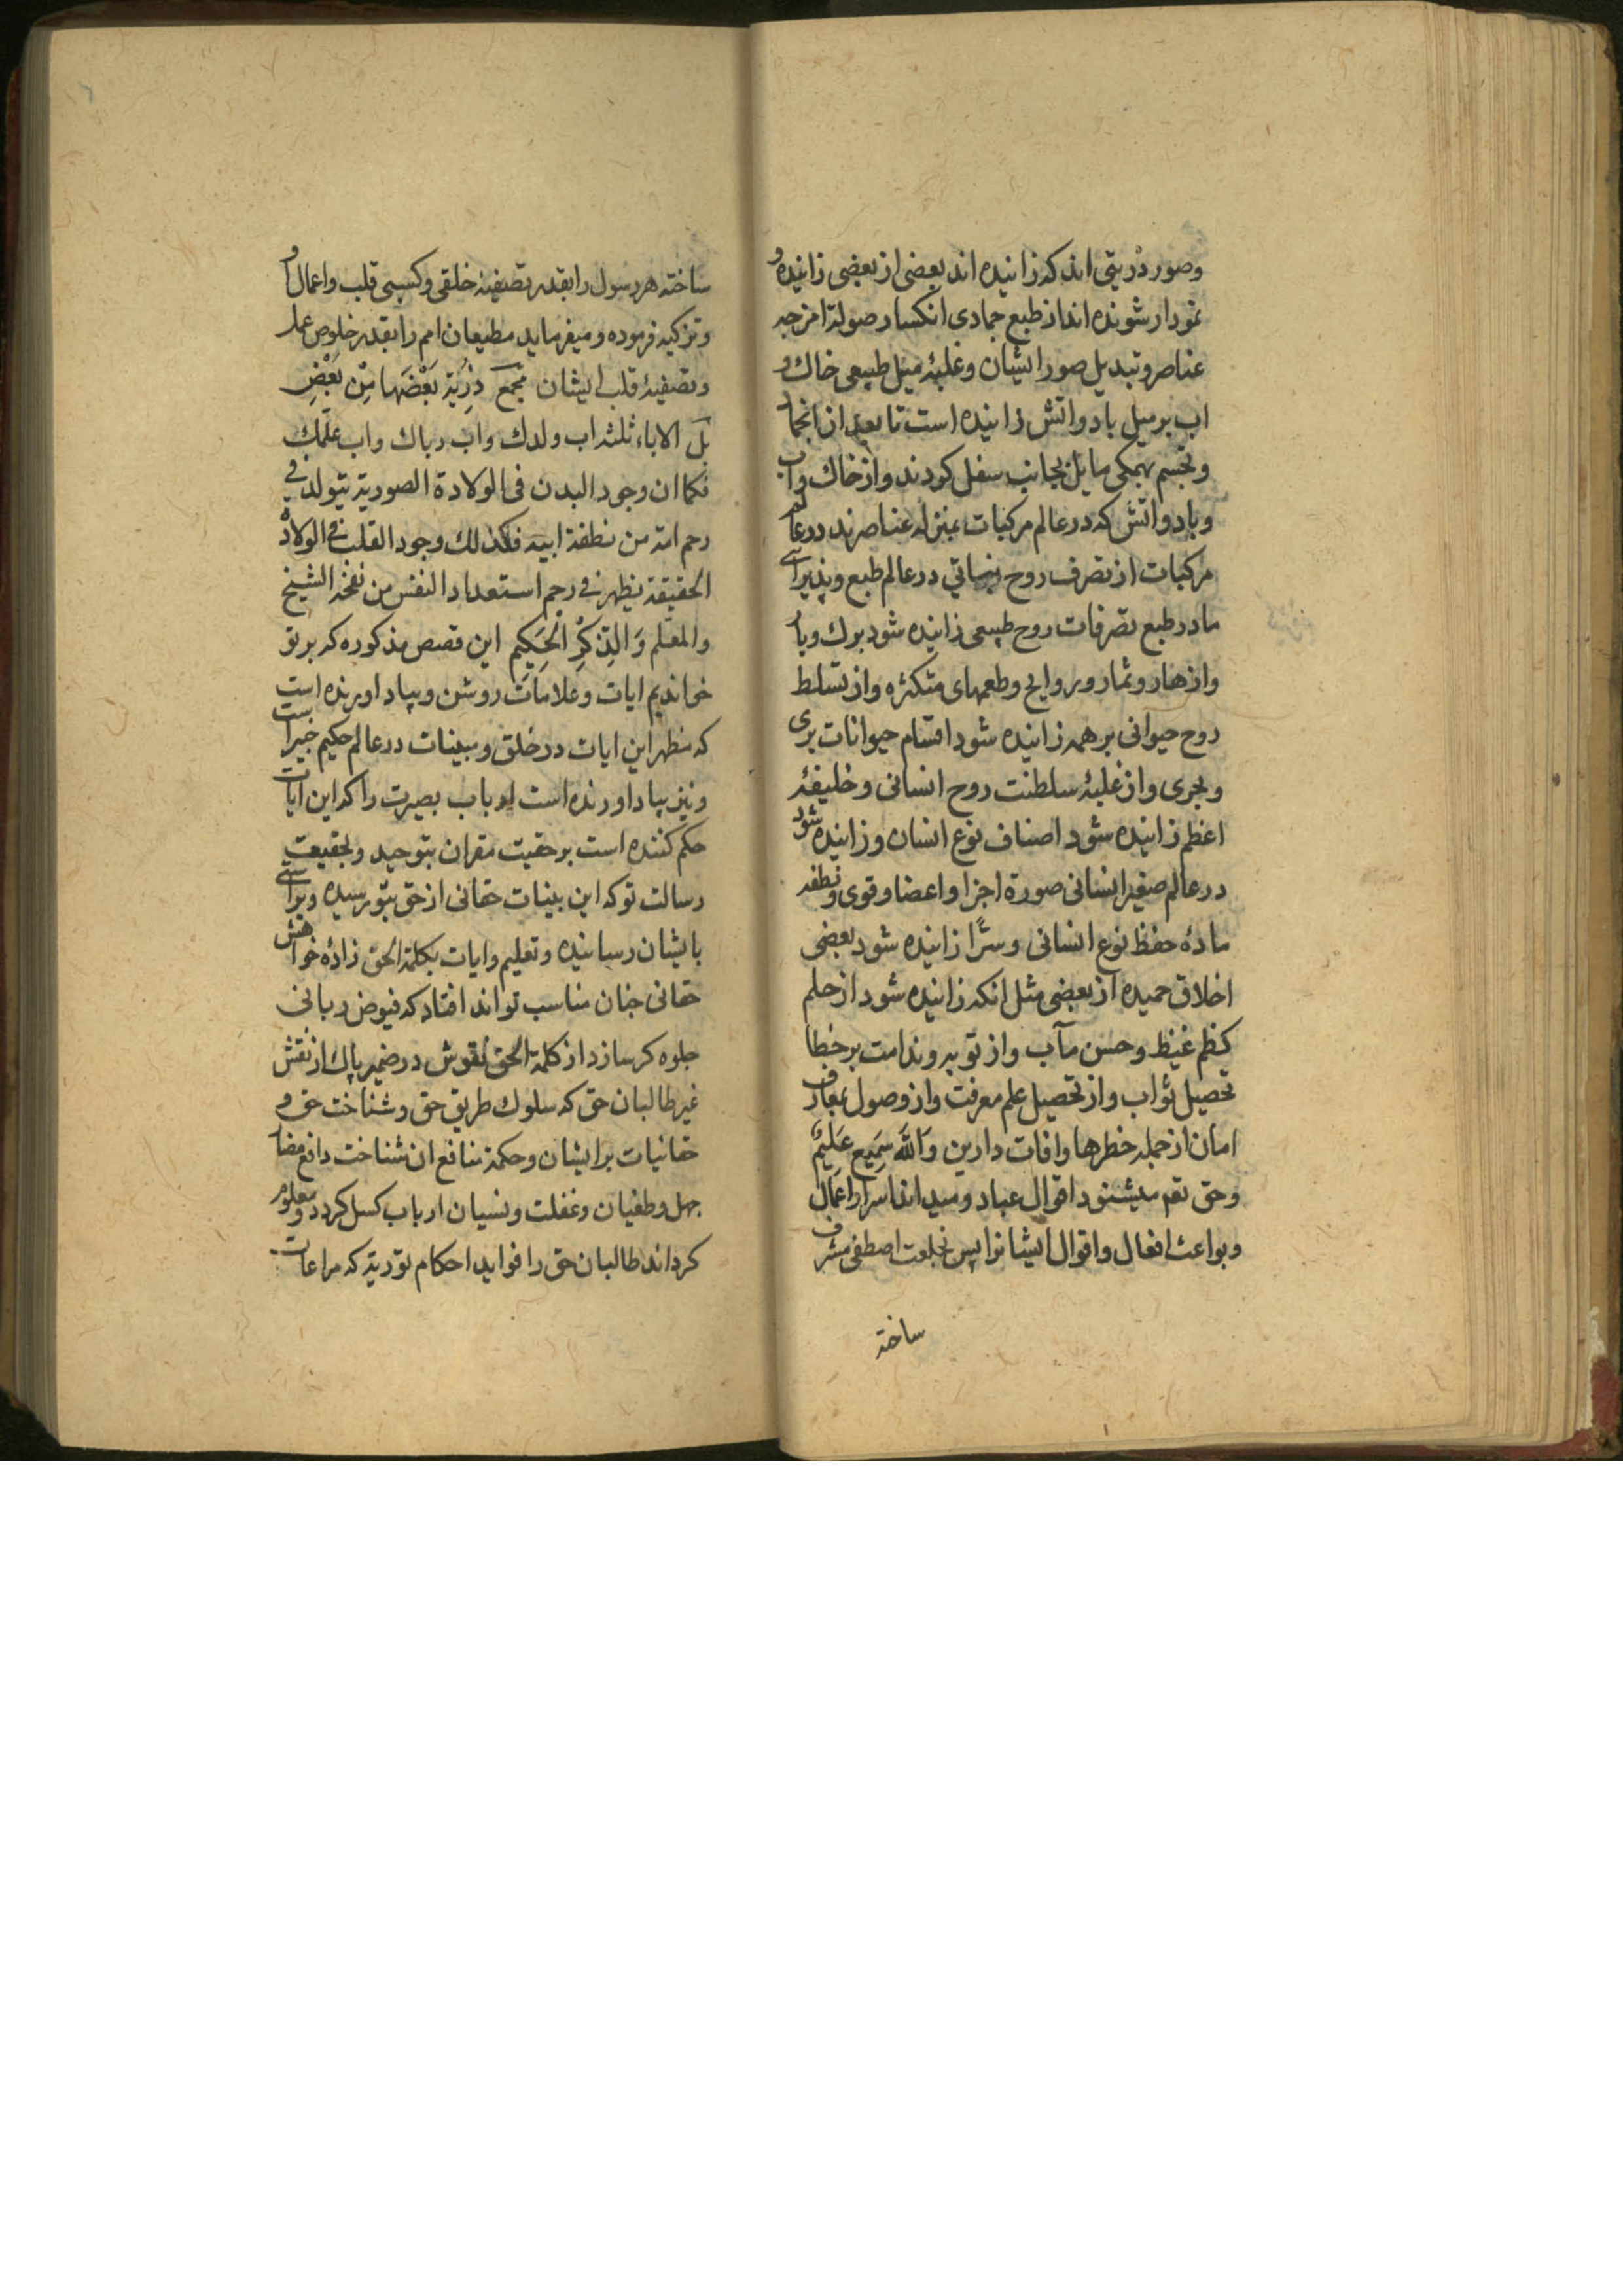 وصور ذریتی اند که زانیده اند بعضی از بعضی زانیده و
نمودار شونده اند از طبع جمادی انکسار صولة امزجه
عناصر و تبدیل صور ایشان و غلبهٔ میل طبیعی خاك و
اب بر میل باد واتش زانیده است تا بعد از انجما
و تجسم بهمکی مایل بجانب سفل کردند واز خاك واب
وباد واتش که در عالم مرکبات بمنزله عناصرند در عالم
مرکبات از تصرف روح نباتی در عالم طبع وپذیرائی
مادر طبع تصرفات روح طبیعی زانیده شود برك وبار
وازهار وثمار وروایح وطعمهای متکثره واز تسلط
روح حیوانی بر همه زانیده شود اقسام حیوانات بری
وبحری واز غلبهٔ سلطنت روح انسانی وخلیفهٔ
اعظم زانیده شود اصناف نوع انسان وزانیده شود
در عالم صغیر انسانی صورة اجزا واعضا وقوی ونطفه
مادهٔ حفظ نوع انسانی وسرًّا زانیده شود بعضی
اخلاق حمیده از بعضی مثل انکه زانیده شود از حلم
کظم غیظ وحسن مآب واز توبه وندامت بر خطا
تحصیل ثواب واز تحصیل علم معرفت واز وصول بمعارف
امان از جمله خطرها وافات دارین وَاللّٰه سَمِیع عَلِیمٌ
وحق تعم میشنود اقوال عباد ومیداند اسرار اعمال
وبواعث افعال واقوال ایشانرا پس بخلعت اصطفی مشرف
ساخته
ساخته هر رسول را بقدر تصفیهٔ خلقی وکسبی قلب واعمال او
وتزکیه فرموده ومیفرماید مطیعان امم را بقدر خلوص عمل
وتصفیهٔ قلب ایشان مجمع ذُرِّیَّة بَعْضَهَا مِنْ بَعْضِ
بَل الاباء ثلثه اب ولدك واب رباك واب علّمك
فکما ان وجود البدن فی الولادة الصوریة یتولد فی
رحم امه من نطفة ابیه فکذلك وجود القلب فی الولادة
الحقیقة یظهر فی رحم استعداد النفس من نفخه الشیخ
والمعلم وَالذِّکْرِ الْحَکِیمِ این قصص مذکوره که بر تو
خواندیم ایات وعلامات روشن وبیاد اورنده است
که مظهر این ایات در خلق ومبینات در عالم حکیم خبیر است
ونیز بیاد اورنده است ارباب بصیرت را که این ایات
حکم کننده است بر حقیت مقران بتوحید وبحقیت
رسالت تو که این بینات حقانی از حق بتو رسیده وبرائی
بایشان رسانیده وتعلیم وایات بکلمة الحق زادهٔ خواهش
حقانی جنان مناسب تواند افتاد که فیوض ربانی
جلوه کر سازد از کلمة الحق نقوش در ضمیر پاك از نقش
غیر طالبان حق که سلوك طریق حق وشناخت حق و
حقانیات برایشان وحکمة منافع ان شناخت دافع مضار
جهل وطغیان وغفلت ونسیان ارباب کسل کردد ومعلوم
کرداند طالبان حق را فواید احکام توریة که مراعات